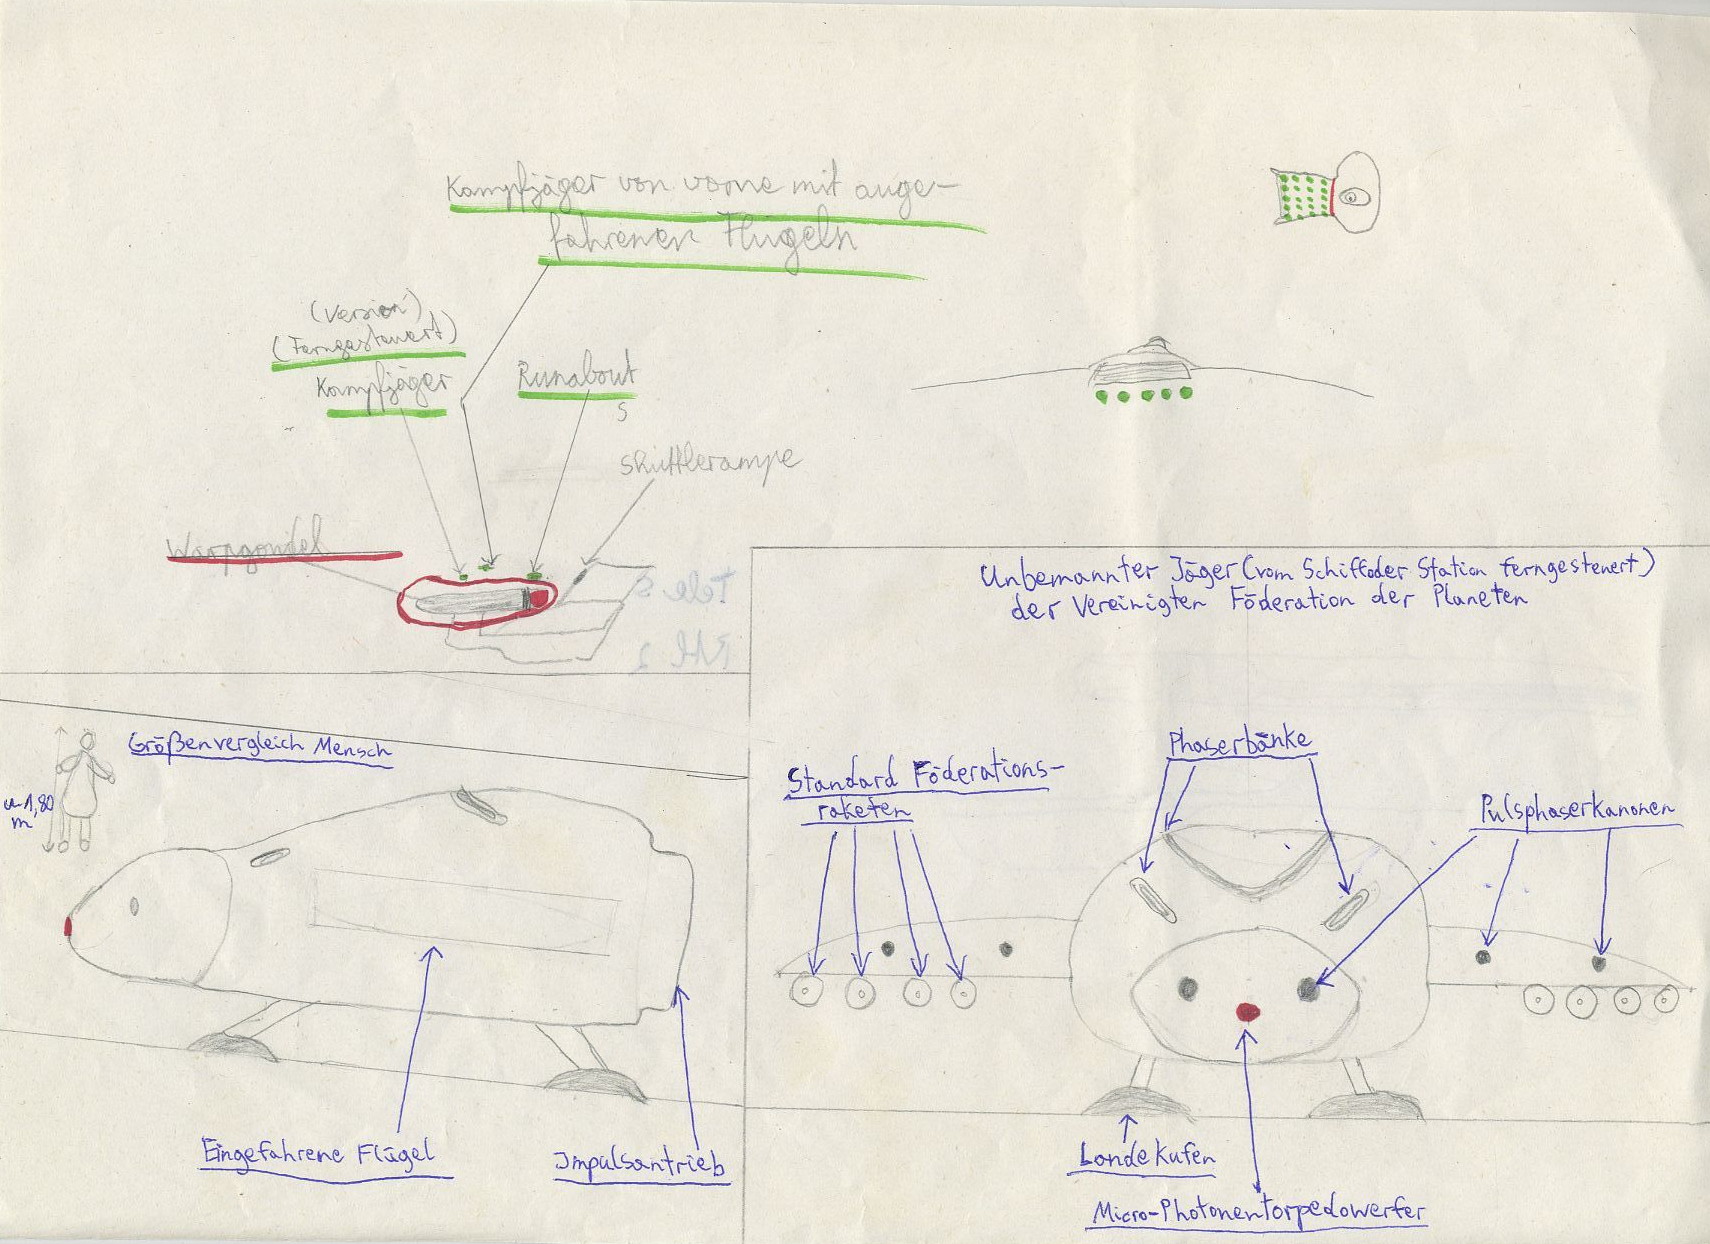 Kampfjäger von vorne mit ange-
fahrenen Flügeln
(Version)
(Ferngesteuert)
Kampfjäger
Runabout
s
Shuttlerampe
Warpgondel
Unbemannter Jäger (vom Schiff oder Station ferngesteuert)
der Vereinigten Föderation der Planeten
Größenvergleich Mensch
1,80
m
Eingefahrene Flügel
Impulsantrieb
Standard Föderations-
raketen
Phaserbänke
Pulsphaserkanonen
Landekufen
Micro-Photonentorpedowerfer